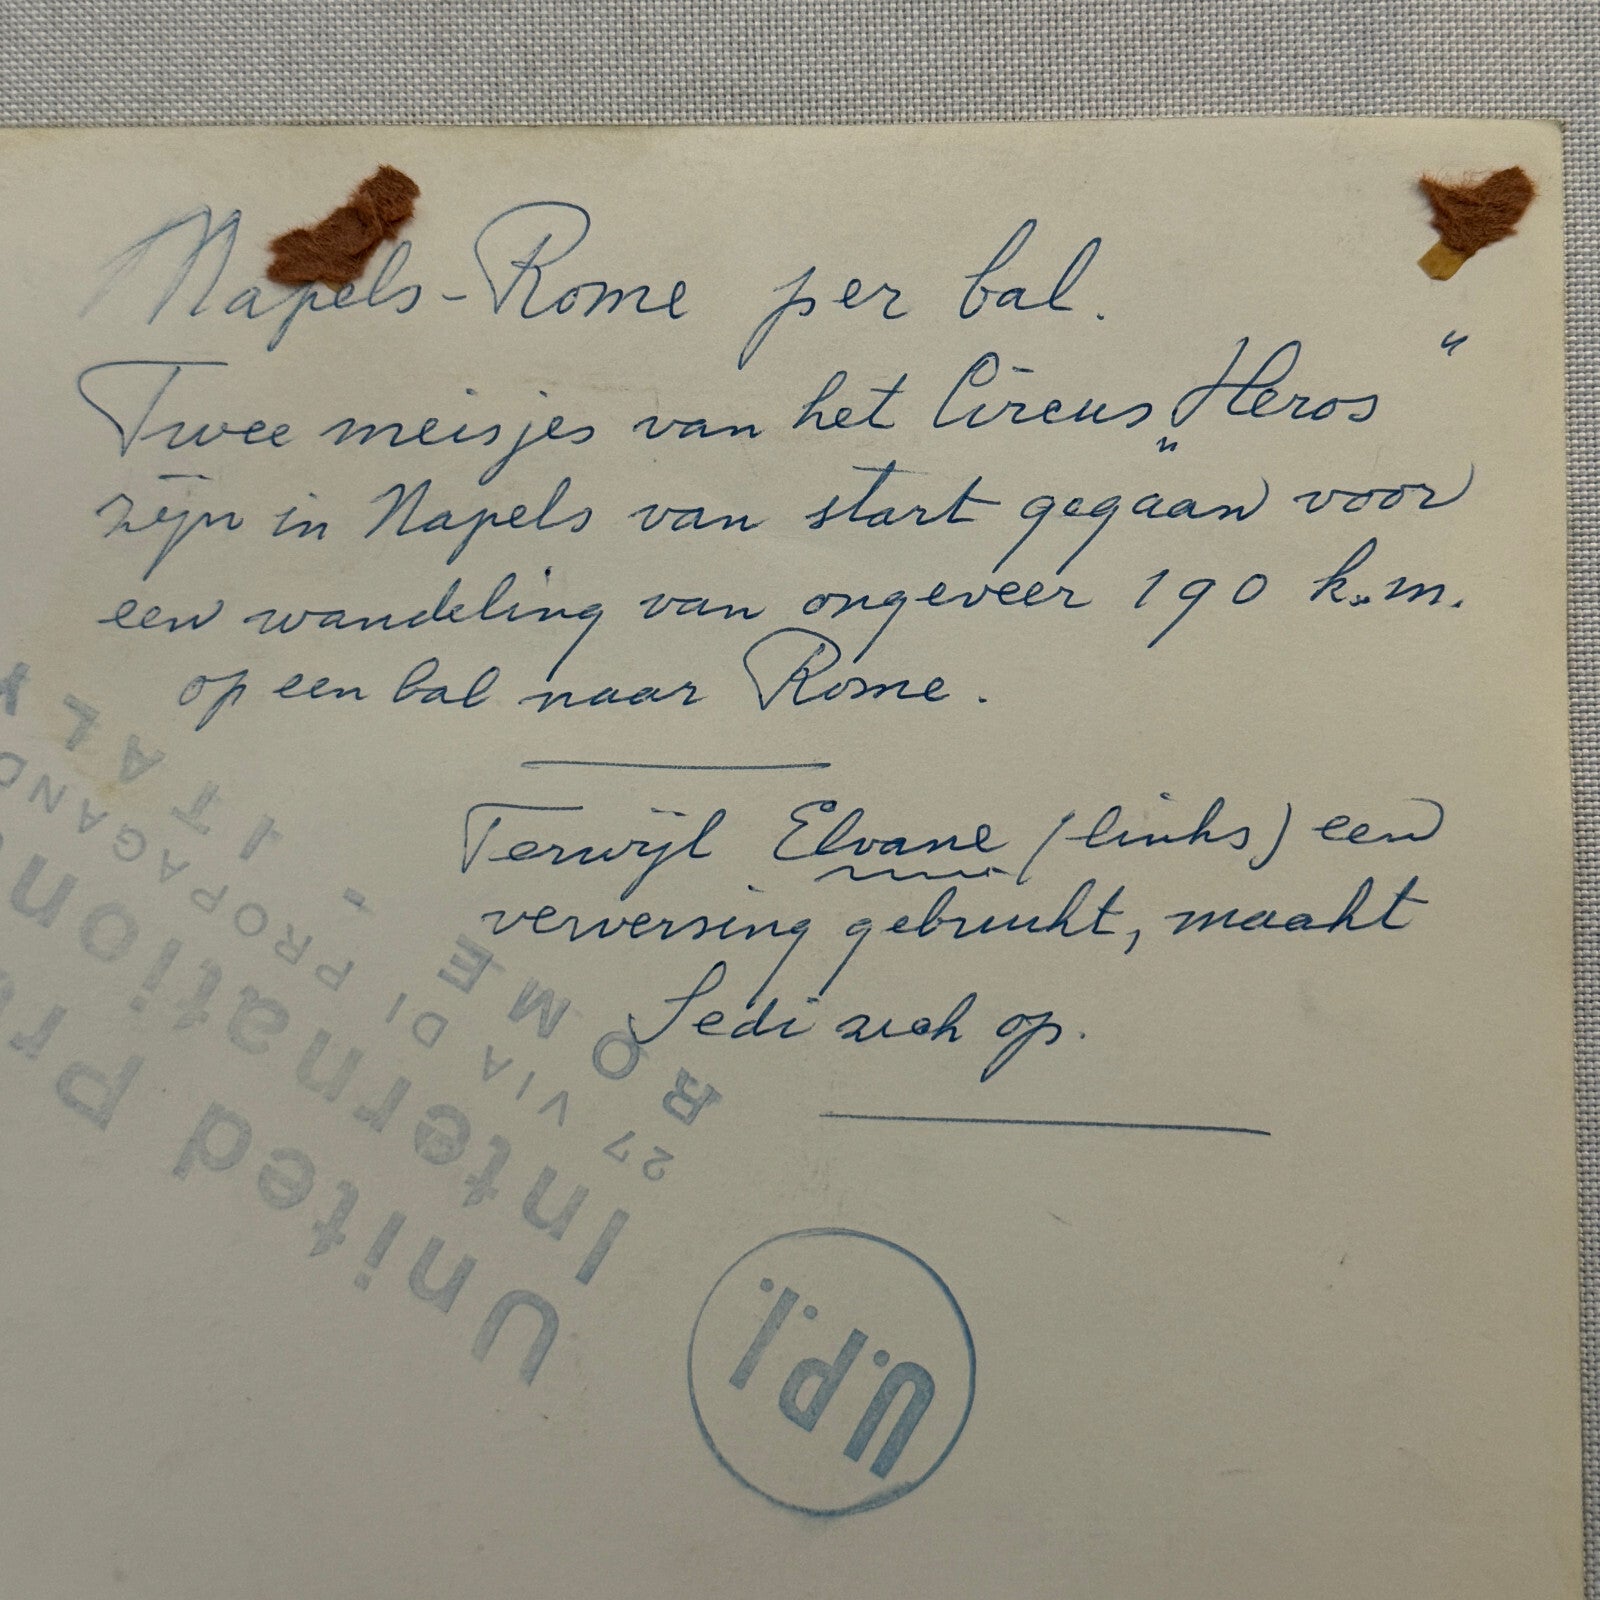 Napels-Rome per bal.
Twee meisjes van het Circus „Heros"
zijn in Napels van start gegaan voor
een wandeling van ongeveer 190 k.m.
op een bal naar Rome.
Terwijl Elvane (links) een
verversing gebruikt, maakt
Sedi zich op.
United Pr
International
27 VIA DI PROPAGAND
ROME - ITALY
U.P.I.